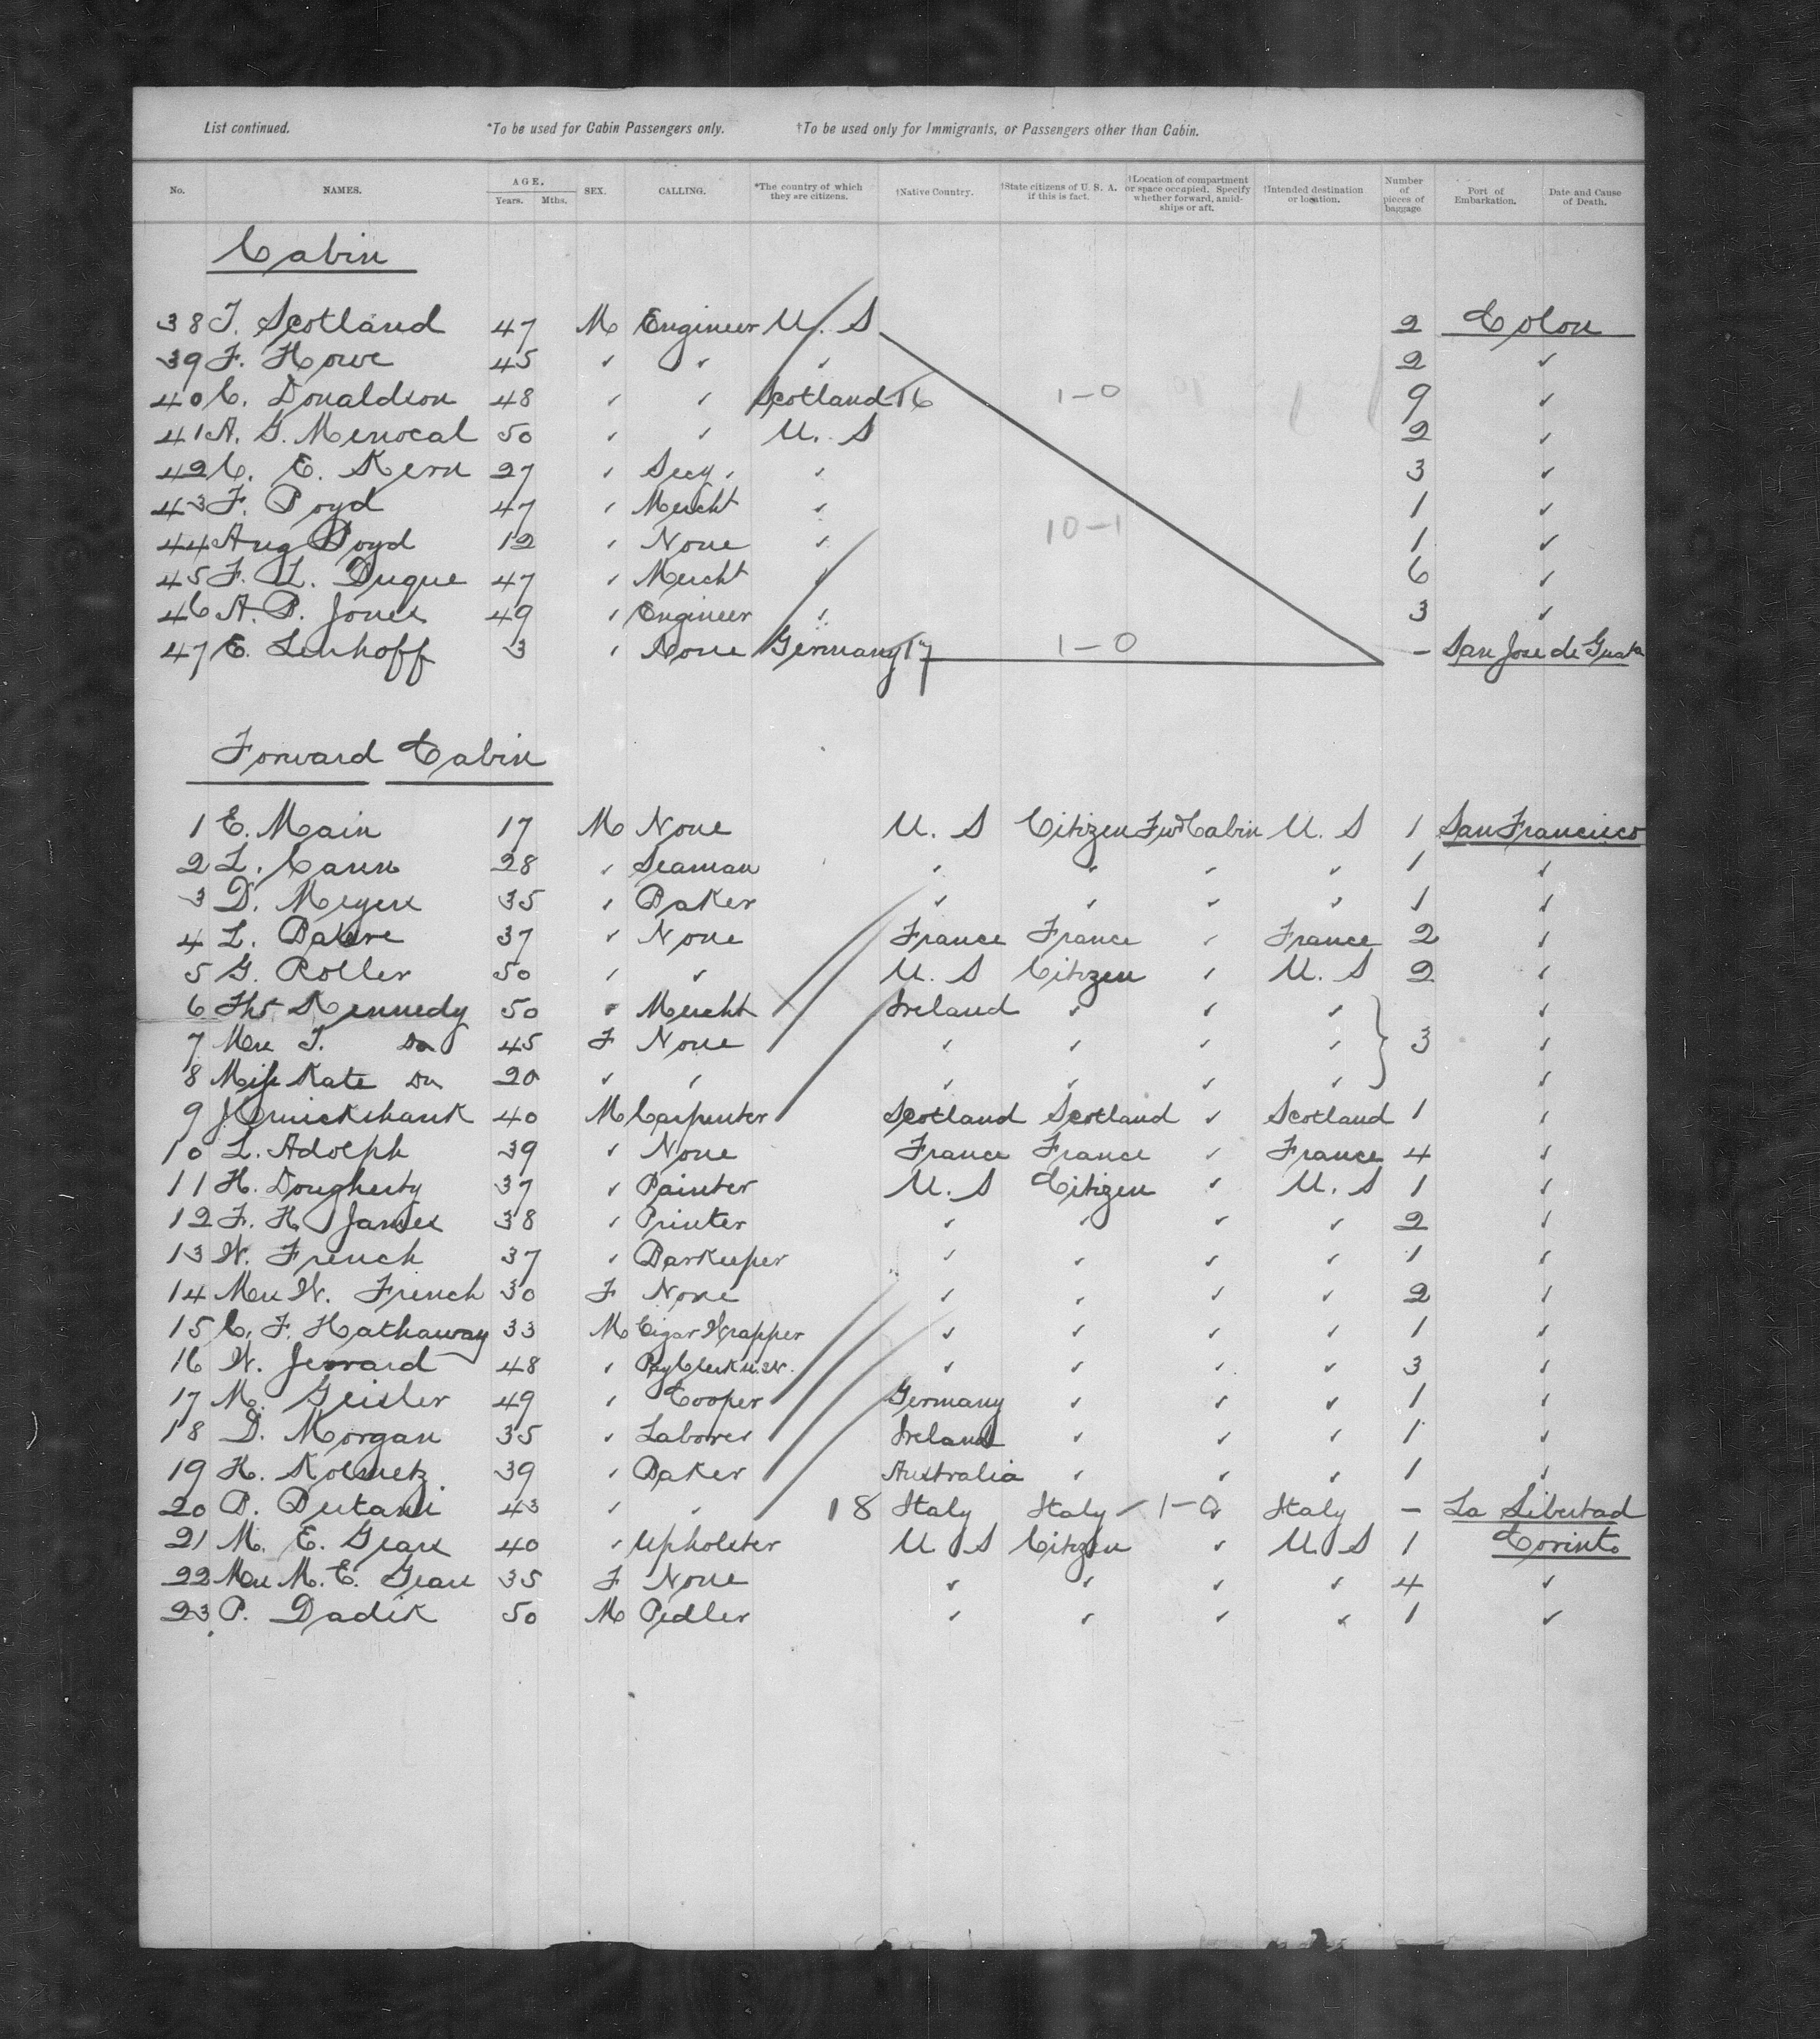 List continued. *To be used for Cabin Passengers only. †To be used only for Immigrants, or Passengers other than Cabin.
No. NAMES. AGE. Years. Mths. SEX. CALLING. *The country of which they are citizens. †Native Country. †State citizens of U. S. A. if this is fact. †Location of compartment or space occupied. Specify whether forward, amidships or aft. †Intended destination or location. Number of pieces of baggage Port of Embarkation. Date and Cause of Death.
Cabin
38 J. Scotland 47 M Engineer U. S 2 Colon
39 F. Howe 45 " " " 2 "
40 C. Donaldson 48 " " Scotland 16 1-0 9 "
41 A. G. Menocal 50 " " U. S 2 "
42 C. E. Kern 27 " Secy. " 3 "
43 F. Boyd 47 " Mercht " 1 "
44 Aug Boyd 12 " None " 10-1 1 "
45 F. L. Duque 47 " Mercht " 6 "
46 A. B. Jones 49 " Engineer " 3 "
47 E. Lenhoff 3 " None Germany 17 1-0 - San Jose de Guata
Forward Cabin
1 E. Main 17 M None U. S Citizen Fwd Cabin U. S 1 San Francisco
2 L. Cann 28 " Seaman " " " " 1 "
3 D. Meyers 35 " Baker " " " " 1 "
4 L. 37 " None France France " France 2 "
5 G. Roller 50 " " U. S Citizen " U. S 2 "
6 Ths Kennedy 50 " Mercht Ireland " " " "
7 Mrs T. Do 45 F None " " " " 3 "
8 Miss Kate Do 20 " " " " " " "
9 J Cruickshank 40 M Carpenter Scotland Scotland " Scotland 1 "
10 L. Adolph 39 " None France France " France 4 "
11 H. Dougherty 37 " Painter U. S Citizen " U. S 1 "
12 F. H. James 38 " Printer " " " " 2 "
13 W. French 37 " Barkeeper " " " " 1 "
14 Mrs W. French 30 F None " " " " 2 "
15 C. F. Hathaway 33 M Cigar Wrapper " " " " 1 "
16 W. Jerrard 48 " Pay Clerk " " " " 3 "
17 M. Geisler 49 " Cooper Germany " " " 1 "
18 D. Morgan 35 " Laborer Ireland " " " 1 "
19 H. Kolmetz 39 " Baker Australia " " " 1 "
20 B. 43 " " 18 Italy Italy 1-0 " Italy - La Libertad
21 M. E. Gears 40 " Upholster U S Citizen " U S 1 Corinto
22 Mrs M. E. Gears 35 F None " " " " 4 "
23 P. Dadik 50 M Pedler " " " " 1 "